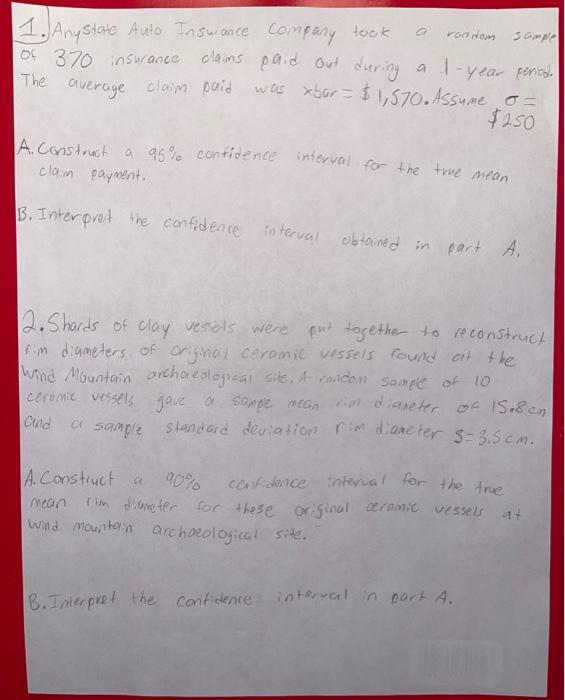 1. Anystate Auto Insurance Company took a random sample
of 370 insurance claims paid out during a 1-year period.
The average claim paid was xbar = $1,570. Assume σ =
$250
A. Construct a 95% confidence interval for the true mean
claim payment.
B. Interpret the confidence interval obtained in part A.
2. Shards of clay vessels were put together to reconstruct
rim diameters of original ceramic vessels found at the
Wind Mountain archaeological site. A random sample of 10
ceramic vessels gave a sampe mean rim diameter of 15.8cm
and a sample standard deviation rim diameter S=3.5cm.
A. Construct a 90% confidence interval for the true
mean rim diameter for these original ceramic vessels at
Wind mountain archaeological site.
B. Interpret the confidence interval in part A.